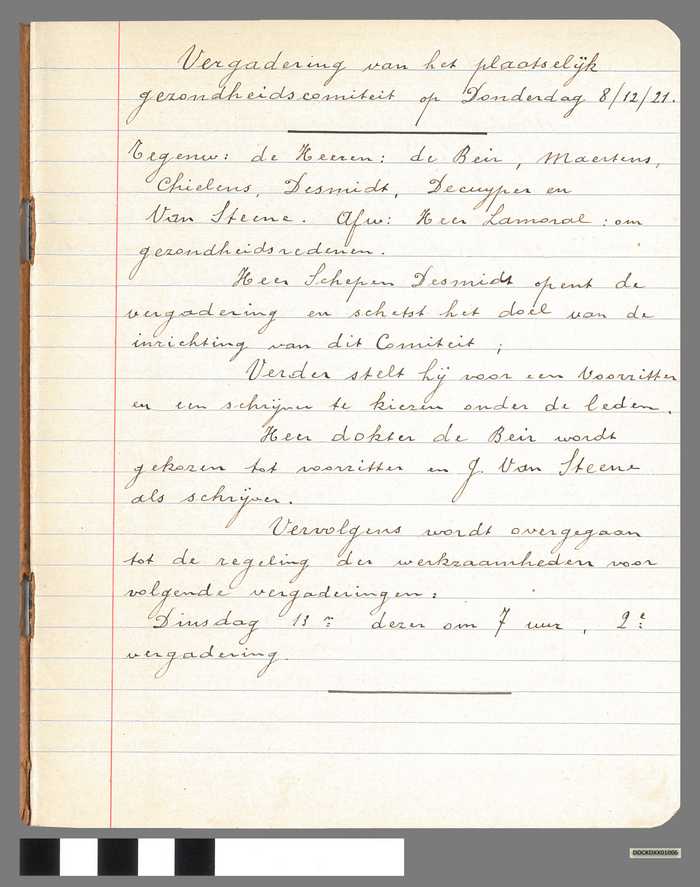 Vergadering van het plaatselijk
gezondheidscomiteit op Donderdag 8/12/21.
Tegenw: de Heeren: de Beir, Maertens,
Chielens, Desmidt, Decuyper en
Van Steene. Afw: Heer Lamoral : om
gezondheidsredenen.
Heer Schepen Desmidt opent de
vergadering en schetst het doel van de
inrichting van dit Comiteit ;
Verder stelt hij voor een Voorzitter
en een schrijver te kiezen onder de leden.
Heer dokter de Beir wordt
gekozen tot voorzitter en J. Van Steene
als schrijver.
Vervolgens wordt overgegaan
tot de regeling der werkzaamheden voor
volgende vergaderingen:
Dinsdag 13n dezer om 7 uur, 2e
vergadering.
DOCKDXX01006